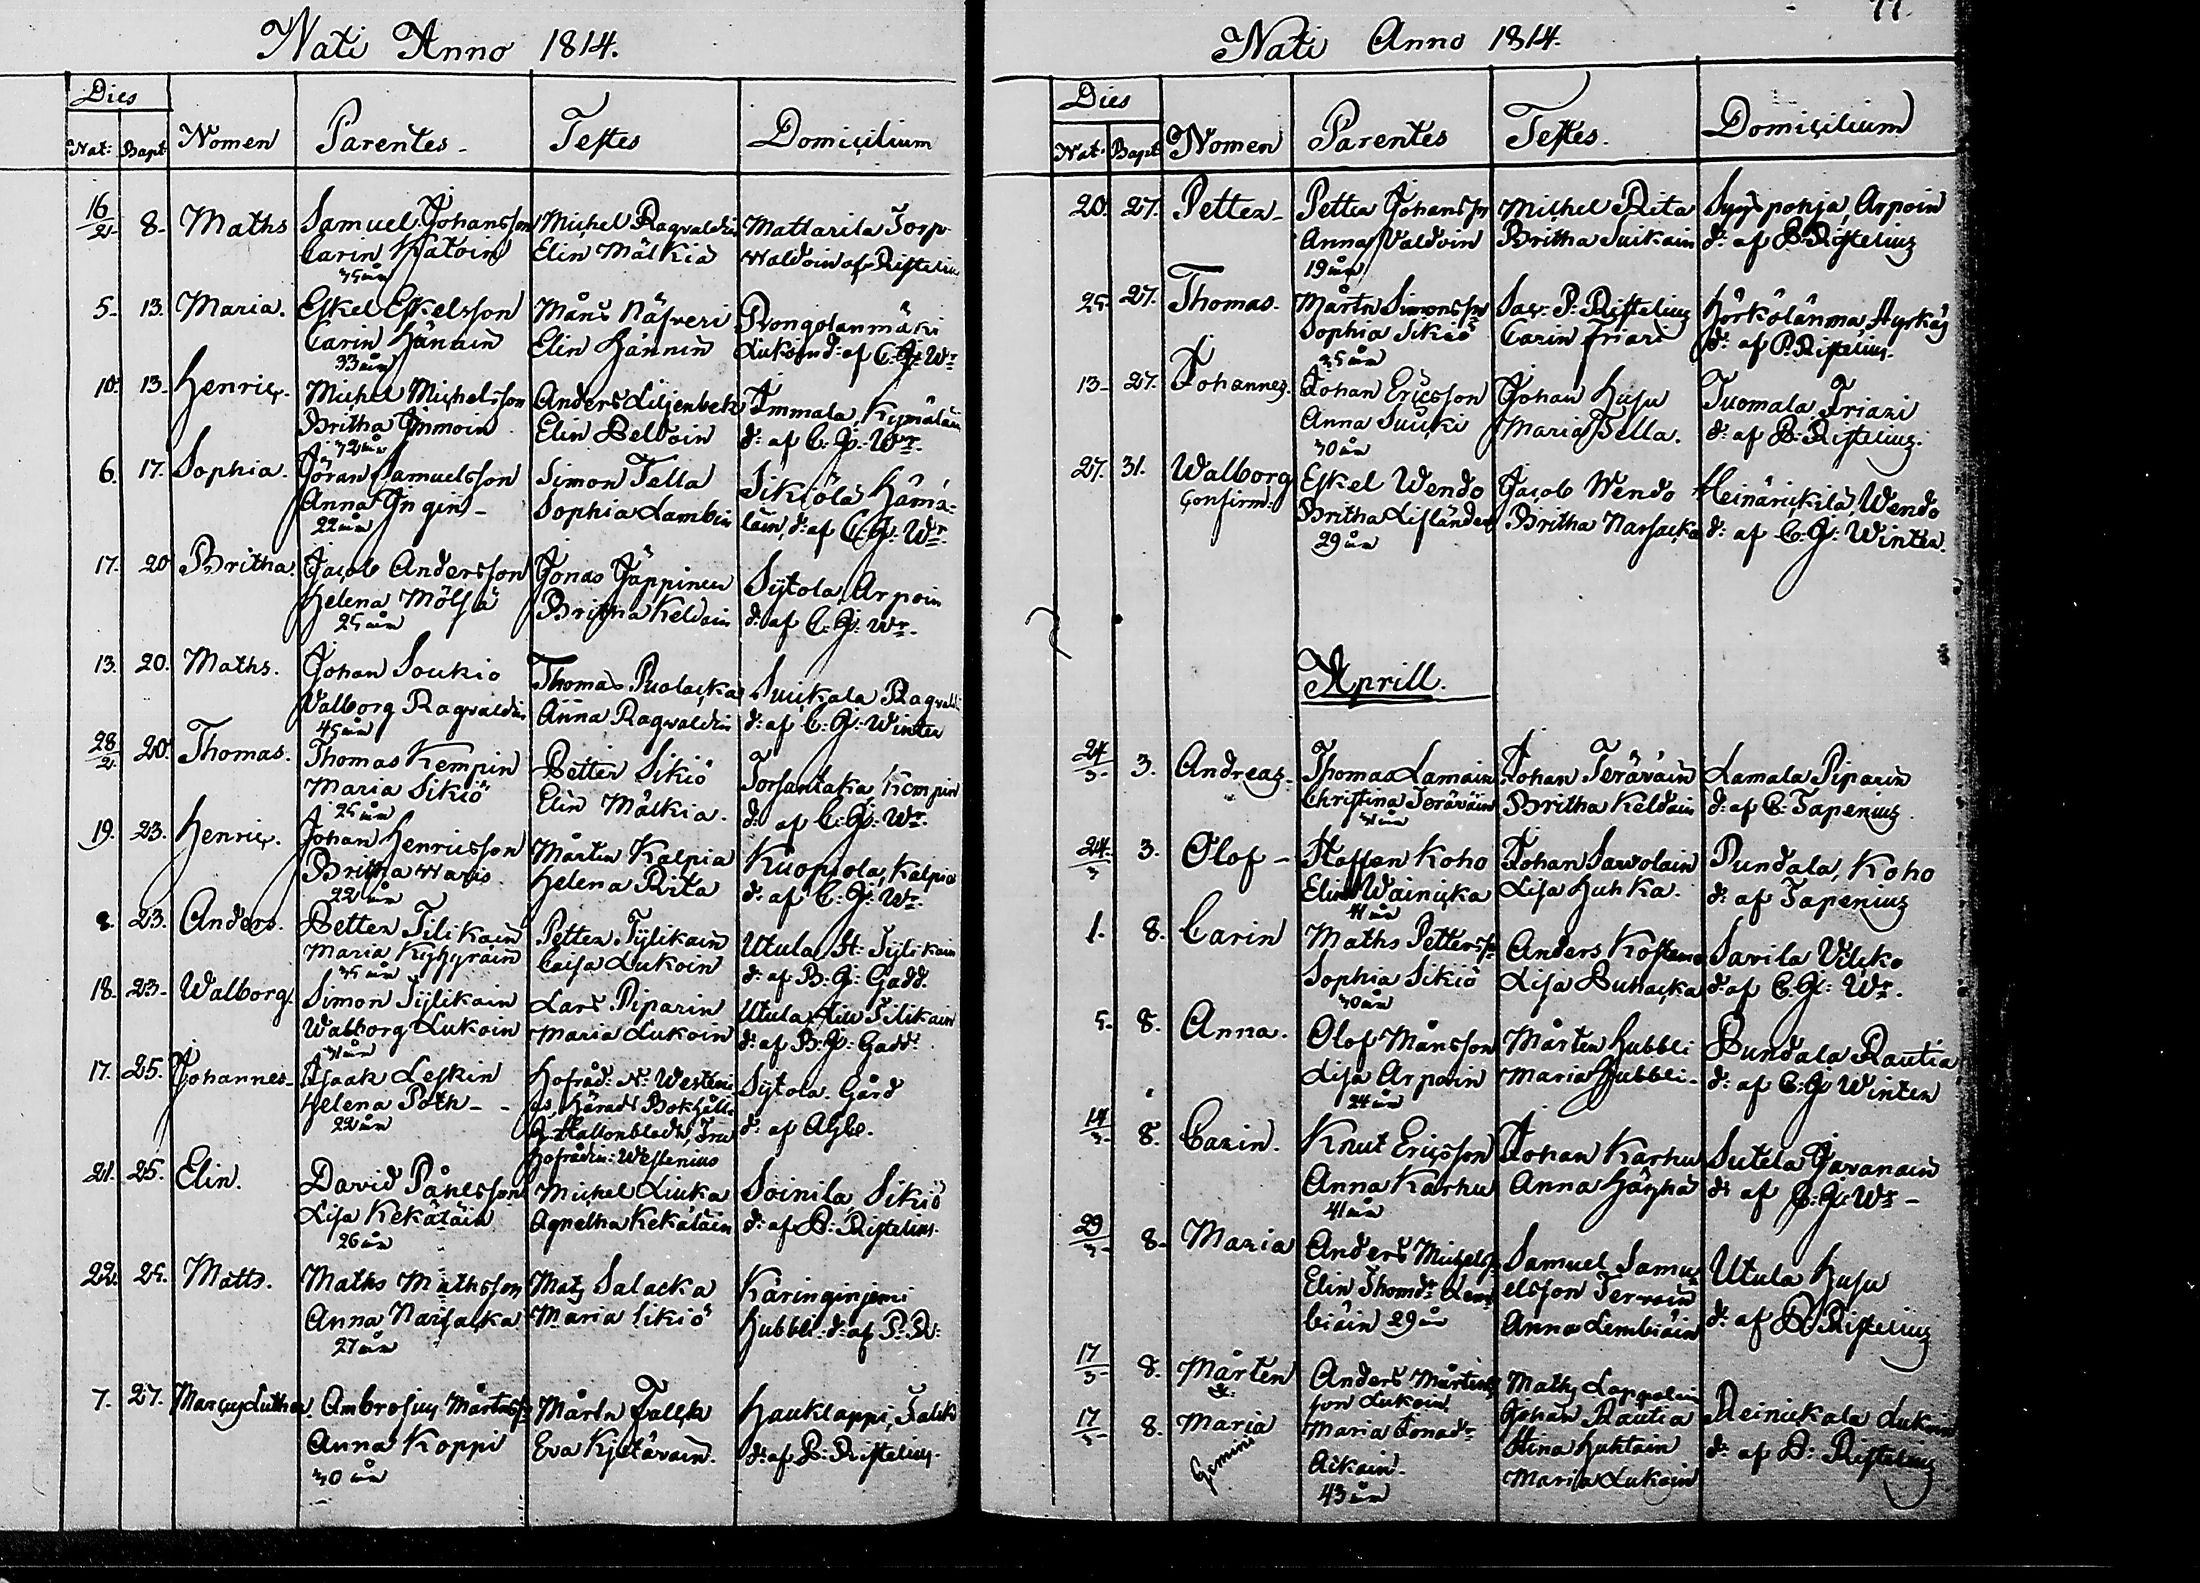 Nati Anno 1814.
Dies
Nat: Bapt: Nomen Parentes Testes Domicilium
16/2 8 Maths Samuel Johansson Michel Ragvaldin Mattarila Torp
Carin Katoin Elin Mälkiä Waldoin af Ristelius
35 år
5 13 Maria. Eskel Eskelsson Måns Näsreri Rongolanmäki
Carin Hännin Elin Hännin Lukoin d: af C: G: Wr
33 år
10 13 Henric. Michel Michelsson Anders Liljenbek Immala, Kymäläin
Britha Immoin Elin Beldoin d: af C: G: Wr
32 år
6. 17. Sophia. Jöran Samuelsson Simon Tella Sikiölä Hämä-
Anna Ingin Sophia Lambin läin, d: af C: G: Wr
22 år
17. 20 Britha. Jacob Andersson Jonas Jäppinen Sytola, Arpoin
Helena Mölsä Britha Keldain d: af C: G: Wr
25 år
13. 20. Maths. Johan Soukio Thomas Puolacka Suickala Ragvaldi
Valborg Ragvaldin Anna Ragvaldin d: af C: G: Winter
45 år
28/2 20. Thomas. Thomas Kempin Petter Sikiö Torsantaka Kempin
Maria Sikiö Elin Mälkia. d: af C: G: Wr.
25 år
19. 23. Henric. Johan Henricsson Mårten Kalpia Kuopiola, Kalpia
Britha Waris Helena Rita d: af C: G: Wr.
22 år
8. 23. Anders. Petter Tilikain Petter Tylikain Utula St: Tylikain
Maria Kyhyräin Caisa Lukoin d: af B: G: Gadd.
35 år
18. 23. Walborg. Simon Tylikain Lars Piparin Utula Tilikain
Walborg Lukoin Maria Lukoin d: af B: G: Gadd.
31 år
17. 25. Johannes Isaak Leskin Hofråd: N: Westeni- Sytola Gård
Helena Poth us, Härads Bokhåll: d: af
22 år G. Hallonbladh, Fru
Hofrådin: Westenius
21. 25. Elin. David Påhlsson Michel Liuka Soinila, Sikiö
Lisa Kekäläin Agnetha Kekäläin d: af P: Ristelius.
26 år
22. 25. Matts. Maths Mathsson Mats Salacka Karinginjemi
Anna Narsacka Maria Sikiö Hubbli. d: af P: R:
27 år
7. 27. Marcus Luther. Ambrosius Mårtenss: Mårtn Talck Hauklappi, Talck
Anna Koppi Eva Kjetäväin. d: af P: Ristelius.
30 år
77
Nati Anno 1814.
Dies
Nat: Bapt Nomen Parentes Testes. Domicilium
20. 27. Petter Petter Johanss: Michel Rita pohja, Arpoin
Anna Valdoin Britha Suikain d: af P: Ristelius
19 år
25 27. Thomas. Mårtn Simonss: Sac: P: Ristelius Hörkölänma Hyrkäs
Sophia Sikiö Carin Friari d: af P: Ristelius.
35 år
13 27. Johannes. Johan Ericsson Johan Husu Tuomala, Friari
Anna Suucki Maria Tella. d: af P: Ristelius.
30 år
27. 31. Walborg Eskel Wendo Jacob Wendo Heinärickilä, Wendo
Confirm: Britha Lisländer Britha Narsacka d: af C: G: Winter.
29 år
Aprill.
24/3 3. Andreas Thomas Lamain Johan Teräväin Lamala Piparin
Christina Teräväin Britha Keldain d: af C: Tapenius
24/3 3. Olof Staffan Koho Johan Savolain Pundala, Koho
Elin Wainicka Lisa Huhka. d: af Tapenius
41 år
1. 8. Carin Maths Petterss: Anders Kostamo Savila Vilcko
Sophia Sikiö Lisa Buhacka d: af C: G: Wr.
30 år
5. 8. Anna. Olof Månsson Mårten Hubbli Pundala Rautia
Lisa Arpoin Maria Hubbli d: af C: G Winter
24 år
14/3 8. Carin. Knut Ericsson Johan Karhu Sutela Javanain
Anna Karhu Anna Härhä d: af C: G: Wr
41 år
29/3 8. Maria Anders Michelss: Samuel Samu- Utula Husu
Elin Thomdr: Lem- elsson Tervoin d: af P: Ristelius
biäin 29 år Anna Lembiäin
17/3 8. Mårten Anders Mårtens- Maths Lappalain
&: son Lukoin Johan Rautia Reinickala Lukoin
17/3 8. Maria Maria Jonadr: Stina Huhtain d: af P: Ristelius
Gemini Aikain. Maria Lukoin
43 år